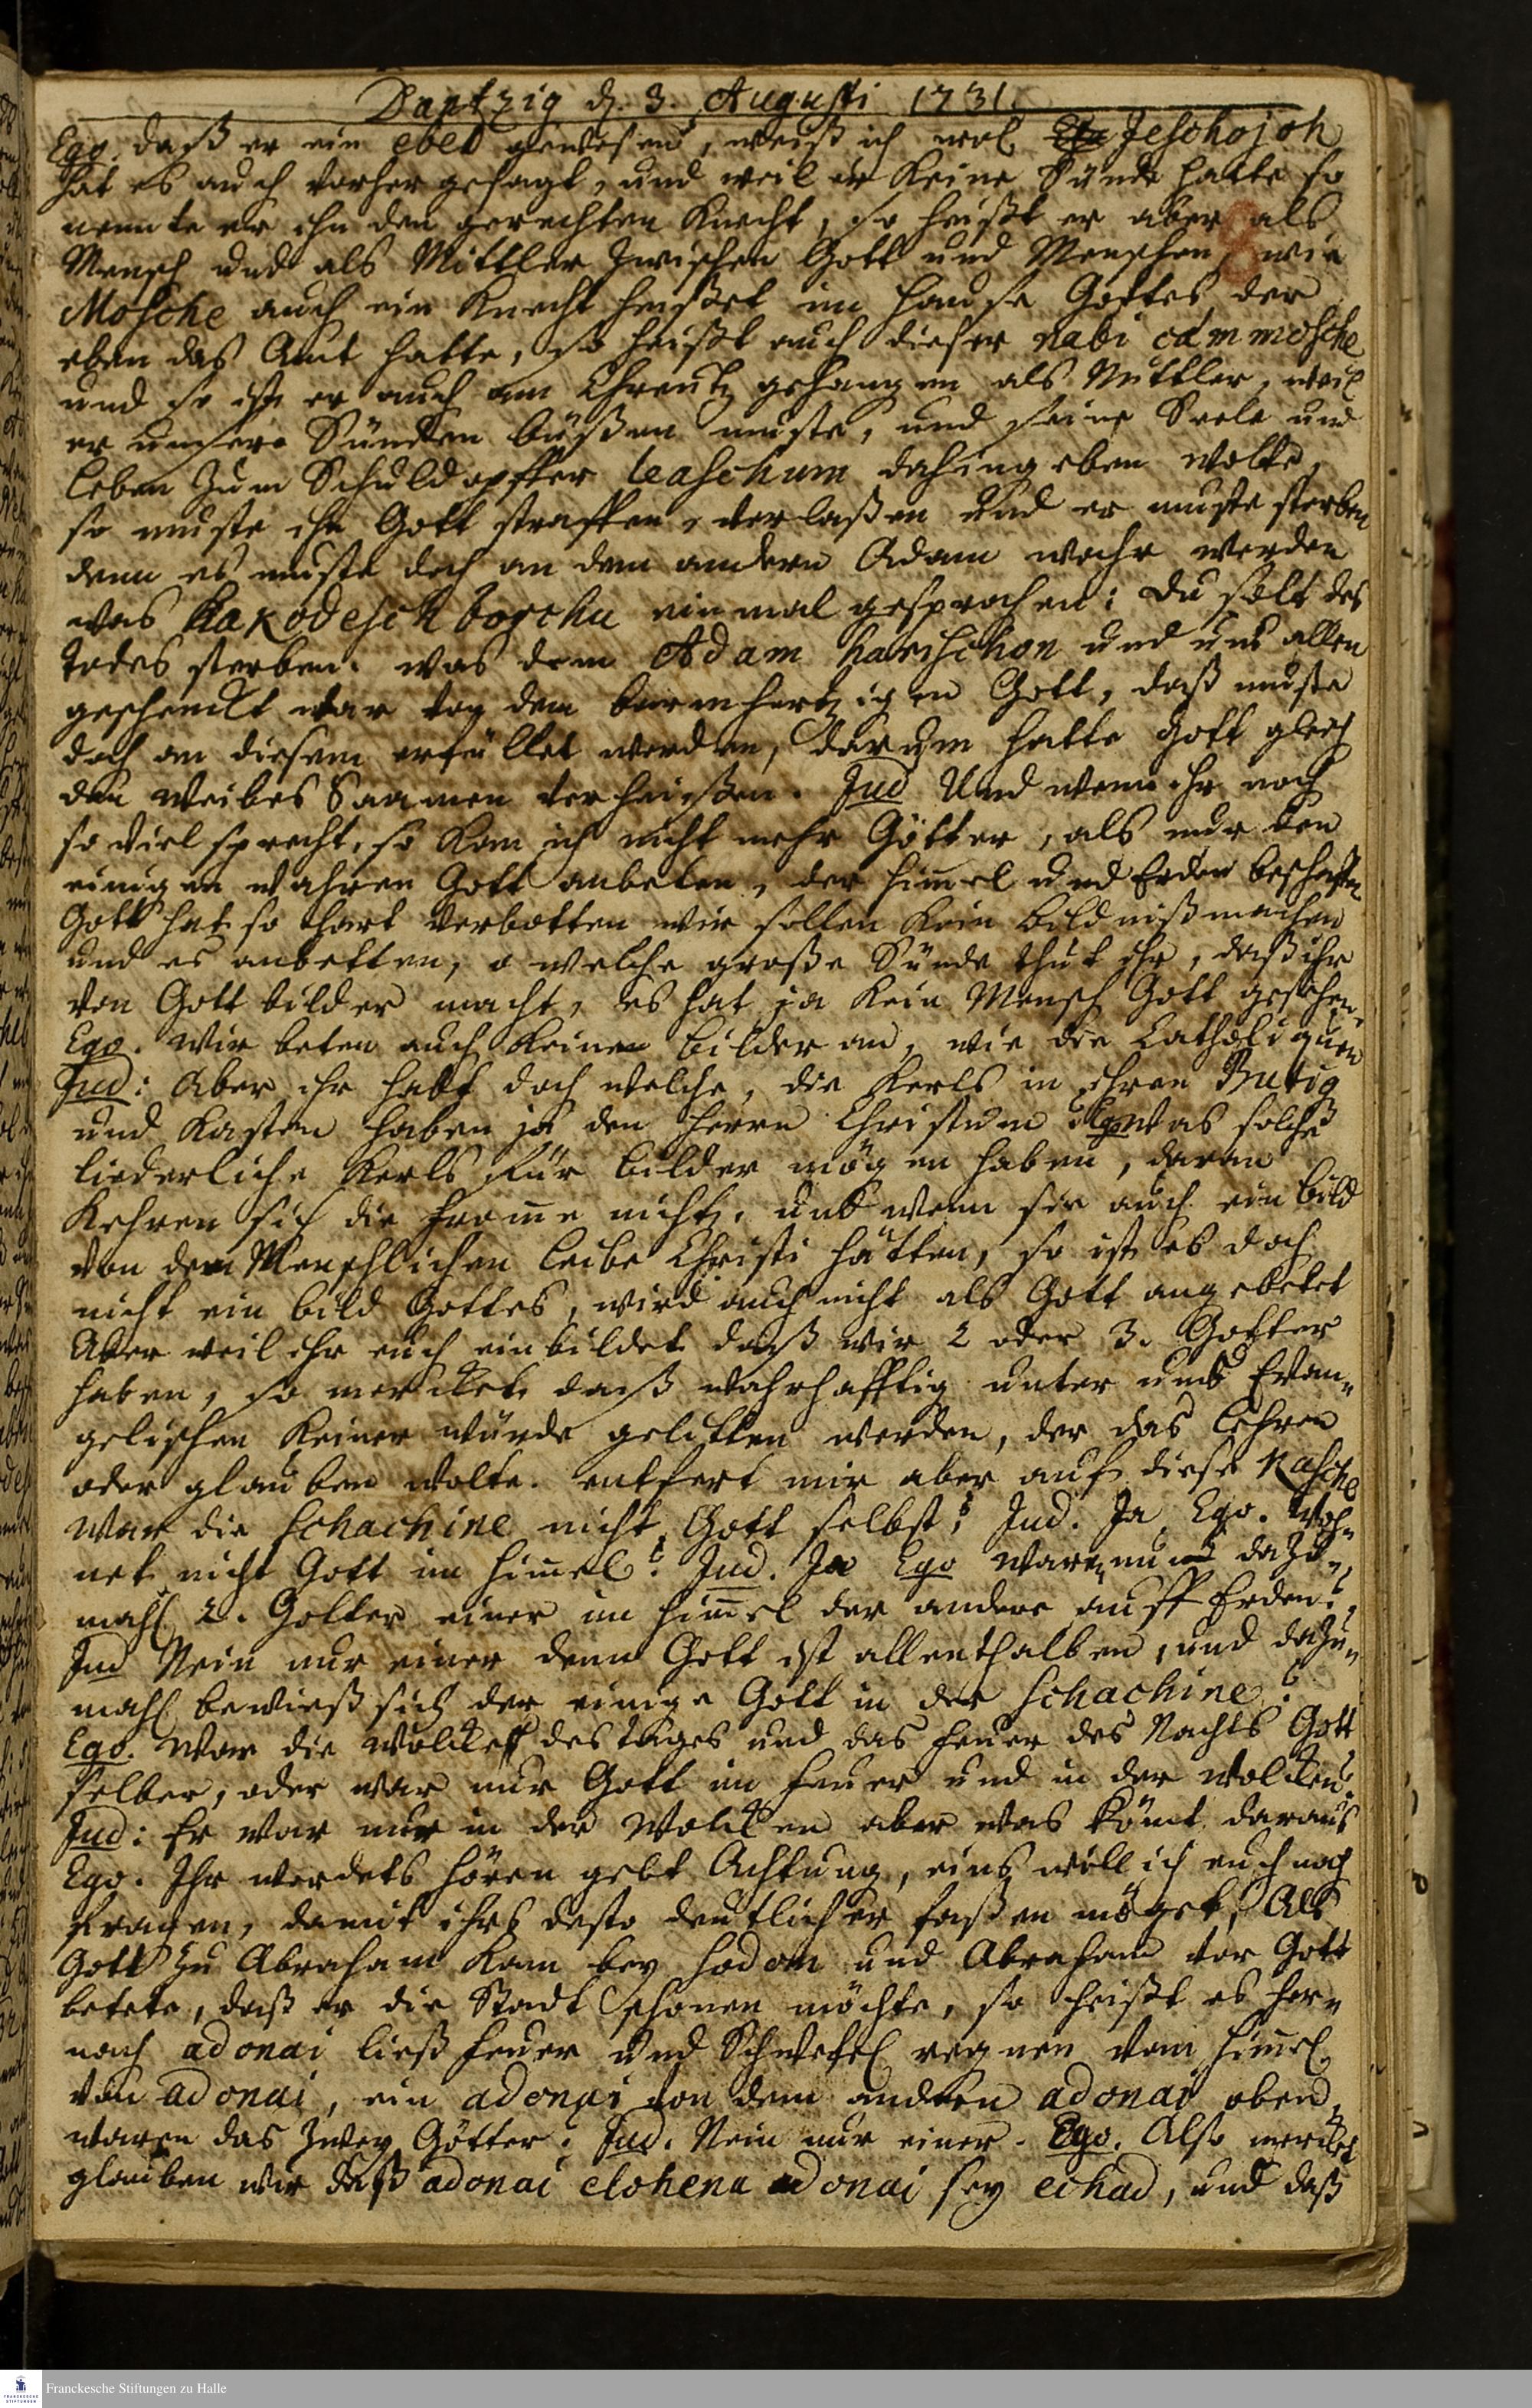 Dantzig d. 3. Augusti 1731.
Ego. daß er ein ebed gewesen, weiß ich wol Jeschojoh
hat es auch vorher gesagt, und weil er keine Sünde hatte so
nennte er ihn den gerechten Knecht, so heißt er aber als
Mensch und als Mittler zwischen Gott und Menschen, wie
Mosche auch ein Knecht heißet im Hause Gottes der
eben das Amt hatte, so heißt auch dieser nabi cam mosche
und so ist er auch am Creutz gehangen als Mittler, weil
er unsere Sünden büßen muste, und seine Seele und
Leben zum Schuldopffer leaschum dahingeben wolte,
so muste ihn Gott straffen, verlaßen und er muste sterben
denn es muste doch an dem andern Adam wahr werden
was hakodesch borchu einmal gesprochen: Du solt des
todes sterben. was dem Adam harischon und uns allen
geschenckt war von dem barmhertzigen Gott, daß muste
doch an diesem erfüllet werden, darum hatte Gott gleich
den Weibes Saamen verheißen. Jud Und wenn ihr noch
so viel sprecht, so kan ich nicht mehr Götter, als nur den
einigen wahren Gott anbeten, der Himel und Erden beschaffen
Gott hat so hart verbotten wir sollen kein bildniß machen
und es anbetten, o welche große Sünde thut ihr, daß ihr
von Gott bilder macht, es hat ja kein Mensch Gott gesehen.
Ego. Wir beten auch keine bilder an, wie die Catholiquen
Jud: Aber ihr habt doch welche, die Kerls in ihren Butig
und Kasten haben ja den Herrn Christum Ego was solche
liederliche Kerls für bilder mögen haben, daran
kehren sich die frome nicht, und wenn sie auch ein bild
von dem Menschlichen leibe Christi hätten, so ist es doch
nicht ein bild Gottes, wird auch nicht als Gott angebetet
Aber weil ihr euch einbildet daß wir 2 oder 3. Götter
haben, so mercket daß wahrhafftig unter uns Evan-
gelischen keiner würde gelitten werden, der das lehren
oder glauben wolte. entfert mir aber auf diese Kasche
War die Schachine nicht Gott selbst? Jud. Ja, Ego. Woh-
net nicht Gott im Himel? Jud. Ja Ego Waren nun dazu-
mahl 2. Götter einer im Himel der andere auff Erden?
Jud Nein nur einer denn Gott ist allenthalben, und dazu-
mahl bewieß sich der einige Gott in der Schachine.
Ego. War die Wolcke des tages und das Feuer des Nachts Gott
selber, oder war nur Gott im Feuer und in der Wolcken?
Jud: Er war nur in der Wolcken aber was kömt daraus
Ego. Ihr werdets hören gebt Achtung, eins will ich euch noch
fragen, damit ihrs desto deutlicher faßen möget, Als
Gott zu Abraham kam bey Sodom und Abraham vor Gott
betete, daß er die Stadt schonen möchte, so heißt es her-
nach adonai ließ Feuer und Schwefel regnen vom Himel
von adonai, ein adonai von dem andern adonai oben,
waren das zwey Götter? Jud. Nein nur einer. Ego. Also mercket
glauben wir daß adonai elohenu adonai sey echad, und daß
Franckesche Stiftungen zu Halle